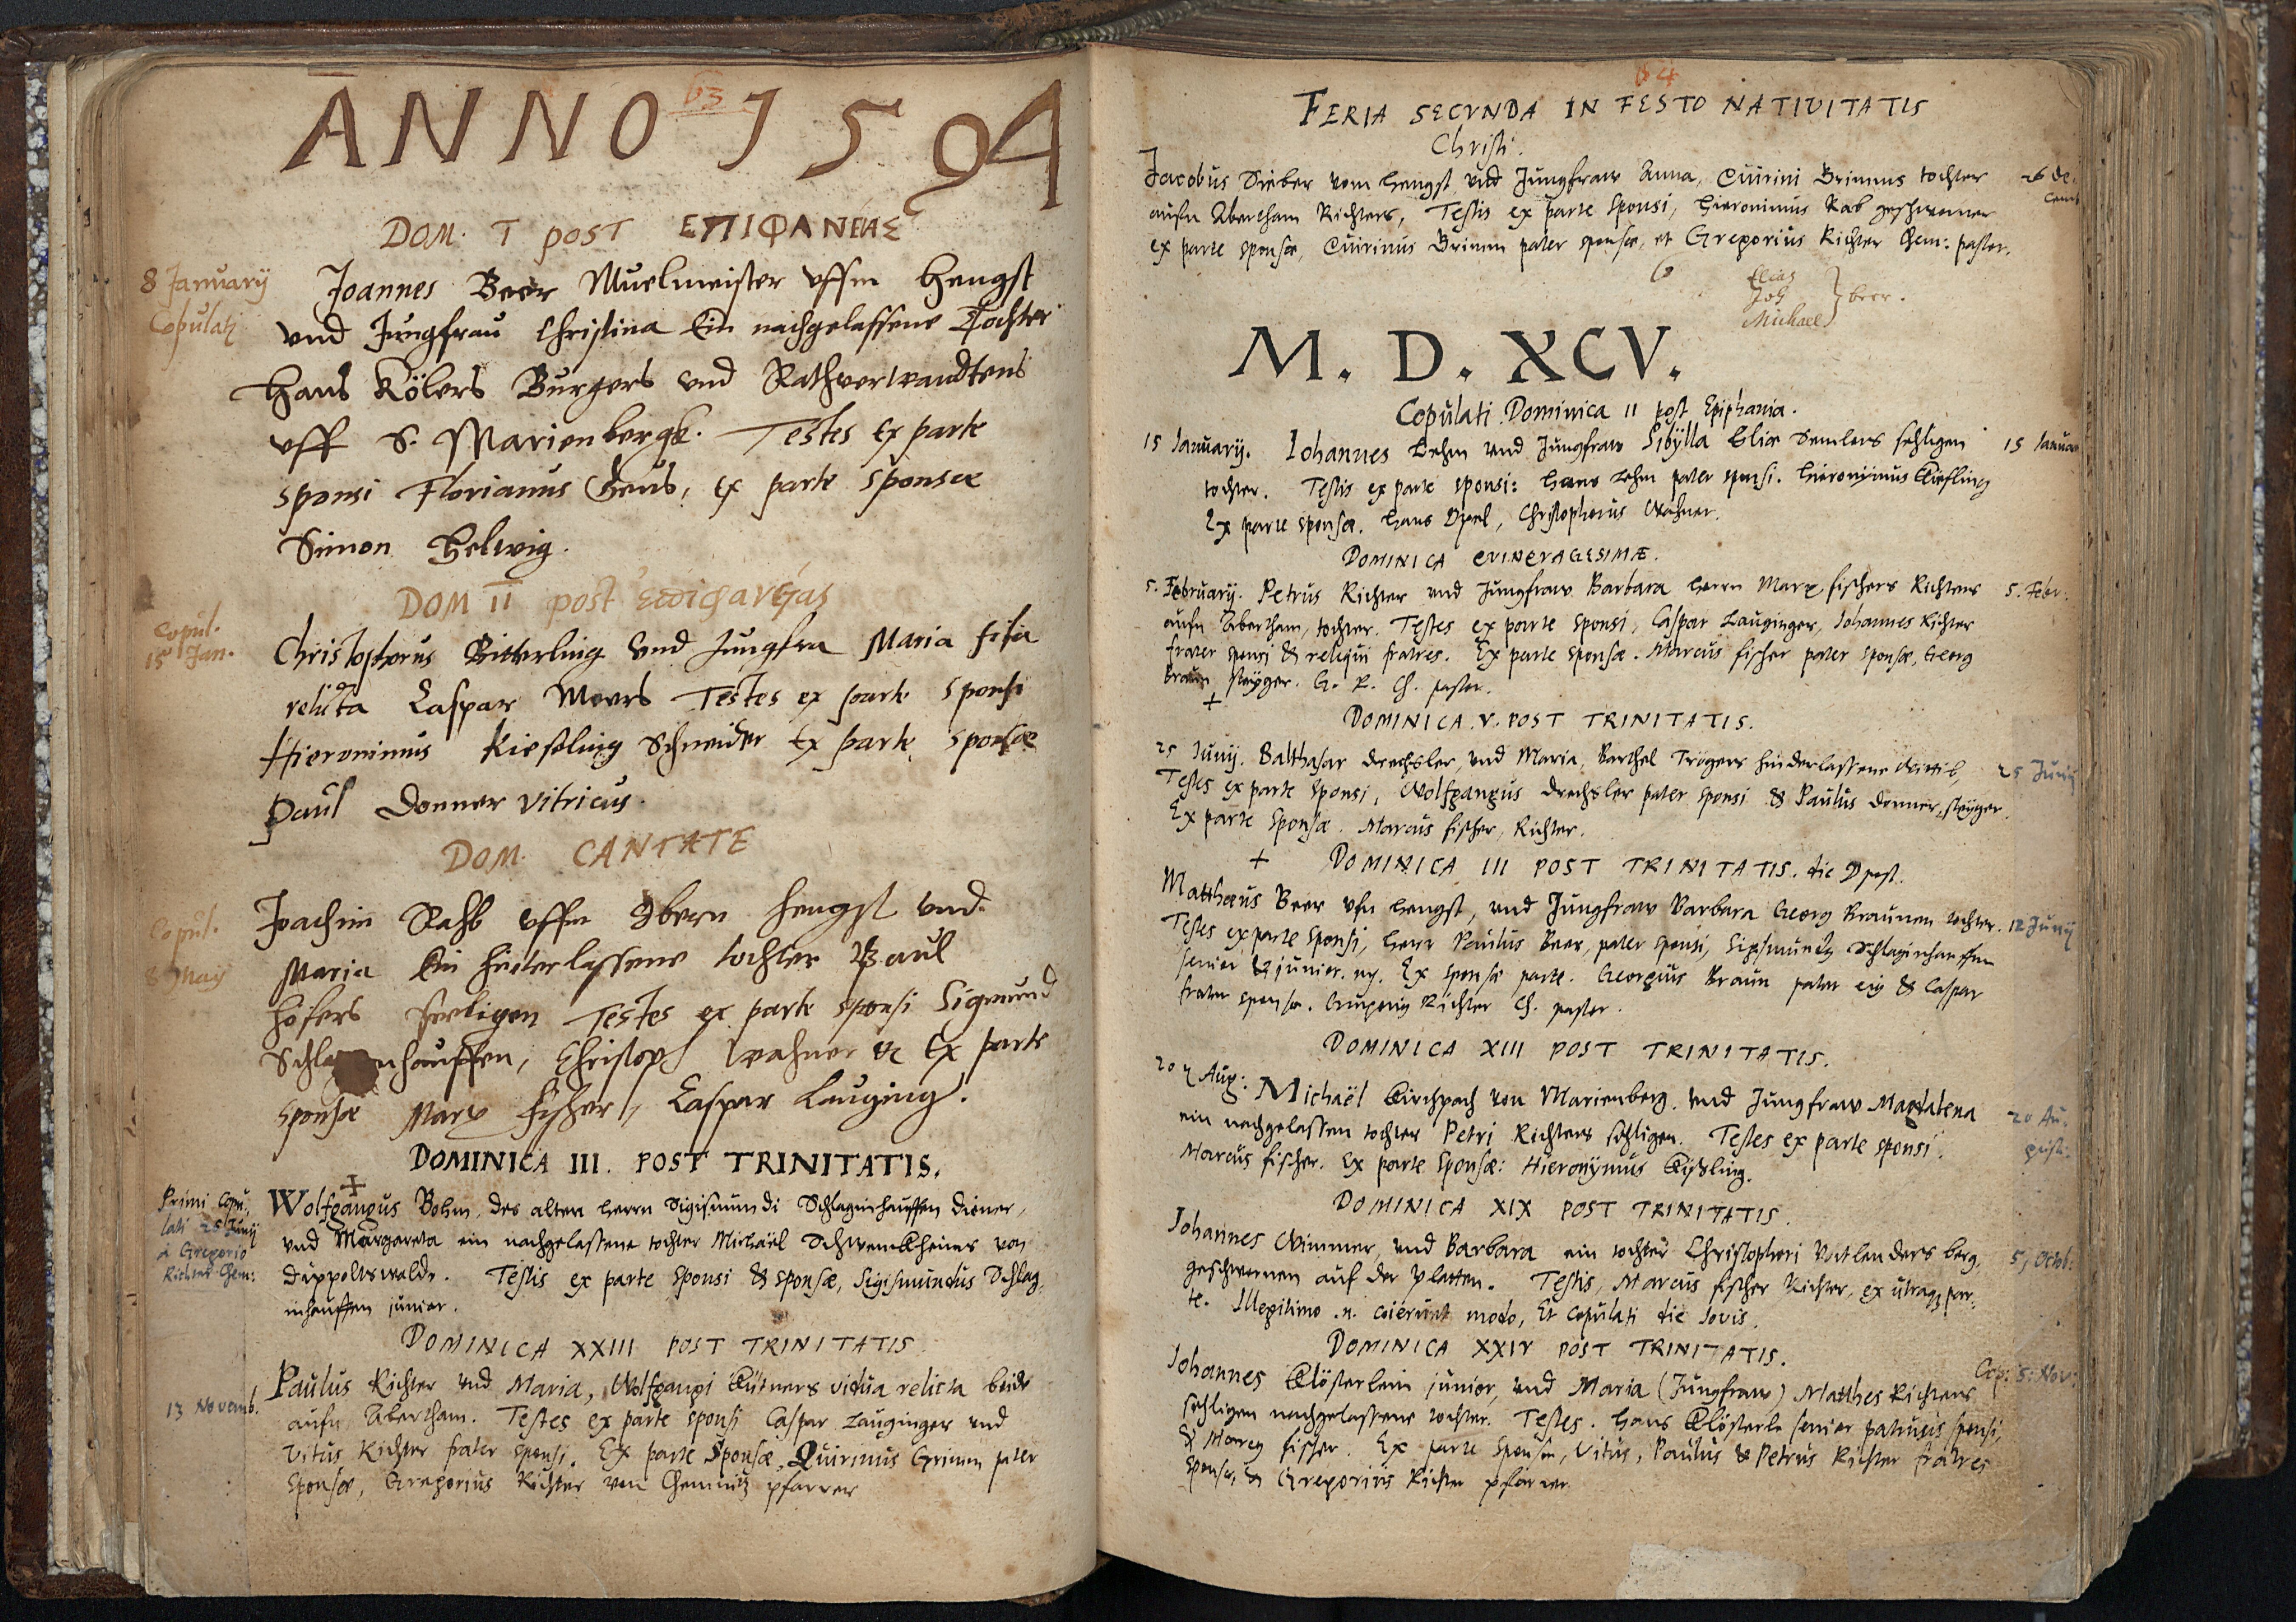 63
ANNO 1594
DOM. I POST ΕΠΙΦΑΝΕΙΑΣ
8 Januarij
Copulati
Joannes Beer Muelmeister vffm Hengst
vnd Jungfrau Christina Ein nachgelassene Tochter
Hans Kölers Burgers vnd Rathverwandtens
vff S. Marienbergk. Testes Ex parte
sponsi Florianus Heus, Ex parte sponsæ
Simon Helwig.
DOM II post
Copul.
15 Jan.
Christophorus Bitterling vnd Jungfra Maria filia
relicta Caspar Meers Testes ex parte sponsi
Hieronimus Kiesling Schneider Ex parte sponsæ
Paul Donner vitricus.
DOM. CANTATE
Copul.
8 May
Joachim Rahb vffm Obern Hengst vnd
Maria Ein hinterlassene tochter Paul
Höfers seeligen Testes ex parte sponsi Sigmund
Schla nhauffen, Christoph Wahner & Ex parte
sponsæ Marx Fischer, Caspar Lauging.
DOMINICA III. POST TRINITATIS.
Primi Copu-
lati 25 Junij
à Gregorio
Richter Chem:
Wolfgangus Behm, des alten Herrn Sigismundi Schlaginhauffen diener,
vnd Margareta ein nachgelassene tochter Michaël von
Dippoltswalde. Testis ex parte sponsi & sponsæ, Sigismundus Schlag-
inhauffen junior.
DOMINICA XXIII POST TRINITATIS
13 Novemb.
Paulus Richter vnd Maria, Wolfgangi Kütners vidua relicta beide
aufn Abertham. Testes ex parte sponsi Caspar Lauginger vnd
Vitus Richter frater sponsi. Ex parte Sponsæ, Quirinus Grimm pater
Sponsæ, Gregorius Richter von Chemnitz pfarrer
64
FERIA SECVNDA IN FESTO NATIVITATIS
Christi.
Jacobus Sieber vom Hengst vnd Jungfraw Anna, Quirini Brimms tochter
26 De-
cemb
aufn Abertham Richters, Testis ex parte Sponsi, Hieronimus Rab geschworner
ex parte sponsæ, Quirinus Brimm pater sponsæ, et Gregorius Richter Chem: pastor.
Elias
Joh
Michael
beer.
M. D. XCV.
Copulati Dominica II post Epiphania.
15 Januarij. Johannes Lehm vnd Jungfraw Sibylla Eliæ Semlers sehligen
15 Januar
tochter. Testis ex parte sponsi: Hans Lehm pater sponsi. Hieronijmus Kiesling
Ex parte sponsæ. Hans Opel, Christopherus Wahner.
DOMINICA QVINQVAGESIMÆ.
5. Februarij. Petrus Richter vnd Jungfraw Barbara Herrn Marx fischers Richters
5. Febr.
aufn Abertham, tochter. Testes ex parte sponsi, Caspar Lauginger, Johannes Richter
frater sponsi & reliqui fratres. Ex parte sponsæ. Marcus fischer pater sponsæ, Georg
Braun steyger. G. R. Ch. pastor.
DOMINICA. V. POST TRINITATIS.
25 Junij. Balthasar Drechsler, vnd Maria, Barthel Trögers hinderlassene Wittib,
25 Junij
Testes ex parte sponsi, Wolfgangus Drechsler pater sponsi & Paulus Donner, steyger.
Ex parte Sponsæ. Marcus fischer, Richter.
DOMINICA III POST TRINITATIS. die post.
Matthæus Beer vfn Hengst, vnd Jungfraw Barbara Georg Braunen tochter.
12 Junij
Testes ex parte sponsi, Herr Paulus Beer, pater sponsi, Sigismundus Schlaginhauffen
senior & junior. Ex sponsæ parte. Georgius Braun pater eius & Caspar
frater sponsæ. Gregorius Richter Ch. pastor.
DOMINICA XIII POST TRINITATIS.
20 Aug: Michaël Kirchpach von Marienberg. vnd Jungfraw Magdalena
20 Au-
gust.
ein nachgelassen tochter Petri Richters sehligen. Testes ex parte sponsi.
Marcus fischer. Ex parte Sponsæ: Hieronymus Kißling.
DOMINICA XIX POST TRINITATIS.
Johannes Wimmer, vnd Barbara ein tochter Christopheri Vatlenders berg-
5, Octob:
geschwornen auf der Platten. Testis, Marcus fischer Richter, ex utraque par-
te. Illegitimo .n. coierunt modo, Et copulati die Jovis.
DOMINICA XXIV POST TRINITATIS.
Cop: 5: Nov:
Johannes Klösterlein junior, vnd Maria (Jungfraw) Matthes Richters
sehligen nachgelassene tochter. Testes. Hans Klösterle senior patruus sponsi,
& Marcus fischer. Ex parte Sponsæ, Vitus, Paulus & Petrus Richter fratres
sponsæ, & Gregorius Richter pfarrer